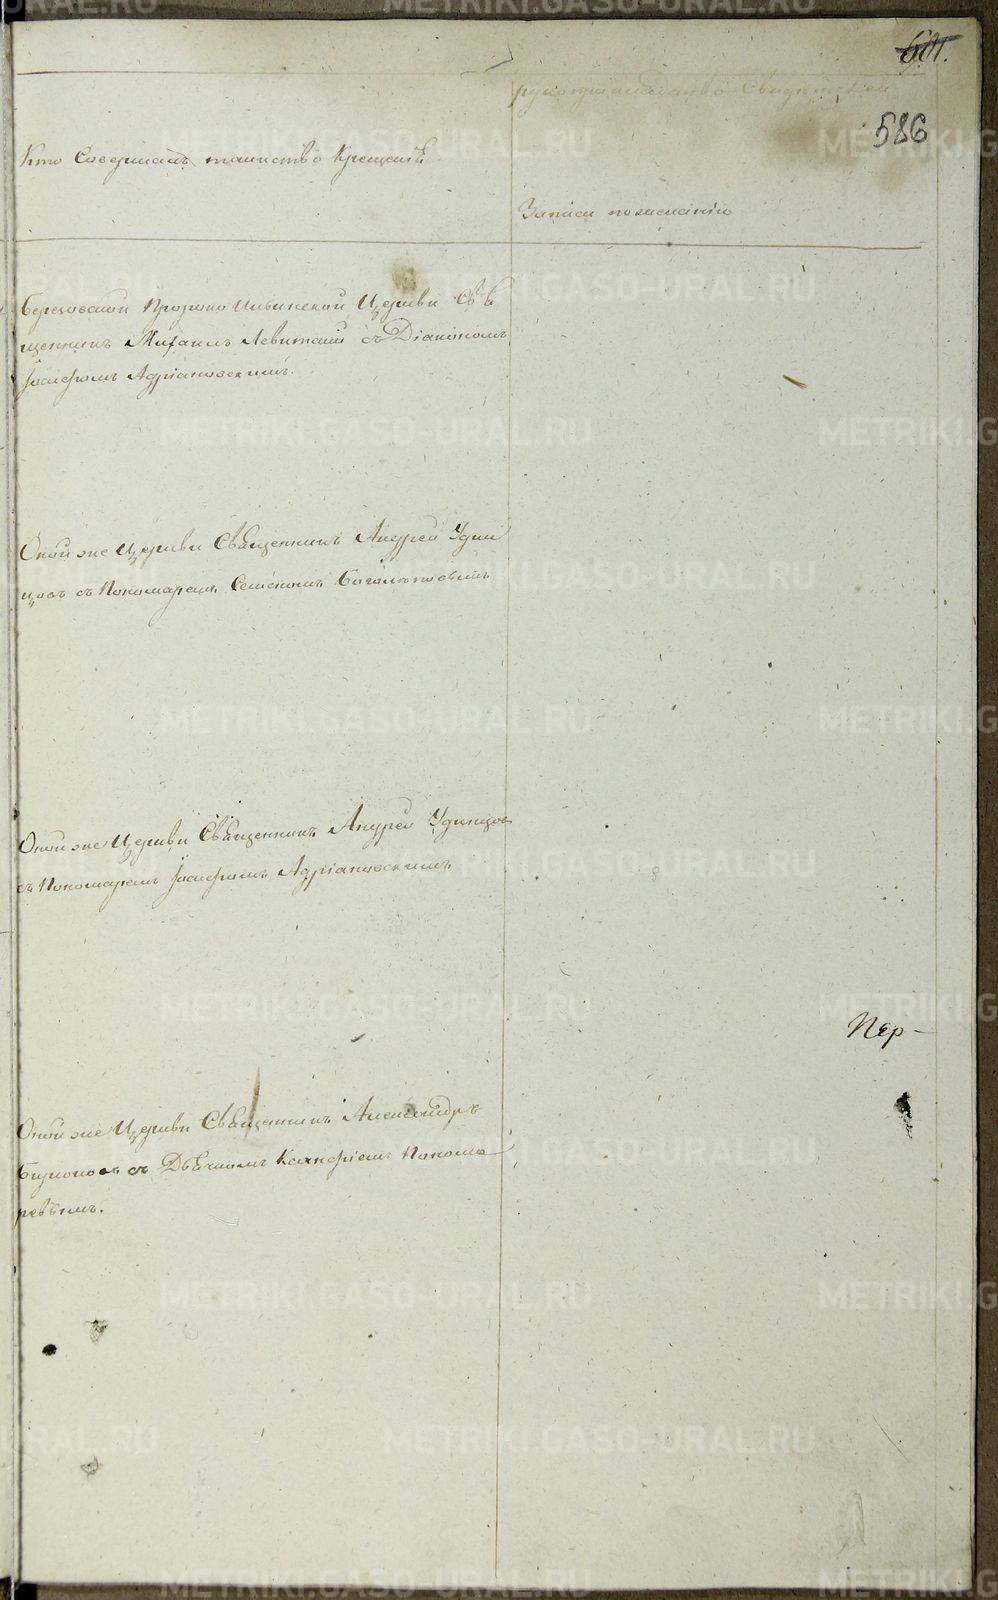 601.
586
Кто Совершалъ таинство Крещенія
Рукоприкладство Свидетелей
Записи по желанію
Береховской Пророко Ильинской Церкви Свя
щенникъ Михаилъ Левитскій съ Діакономъ
Іосифомъ Адріановскимъ.
Оной же Церкви Священникъ Андрей Удин
цовъ съ Пономаремъ Семеномъ Боголюповымъ
Оной же Церкви Священникъ Андрей Удинцов
съ Пономаремъ Іосифомъ Адріановскимъ
Пер-
Оной же Церкви Священникъ Александръ
съ Дьячкомъ Ксенофтомъ Понома
ревымъ.
METRIKI.GASO-URAL.RU